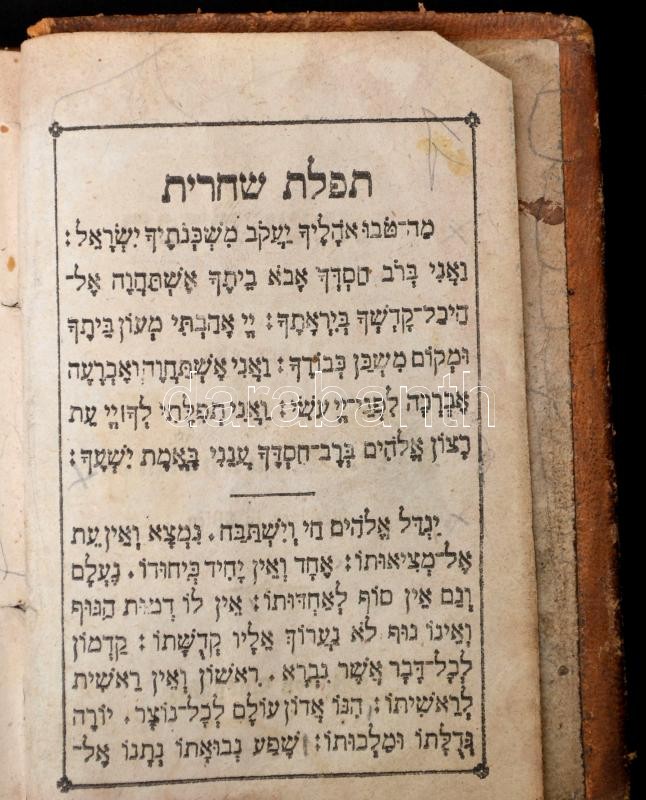 תפלת שחרית
מַה־טֹּבוּ אֹהָלֶיךָ יַעֲקֹב מִשְׁכְּנֹתֶיךָ יִשְׂרָאֵל:
וַאֲנִי בְּרֹב חַסְדְּךָ אָבֹא בֵיתֶךָ אֶשְׁתַּחֲוֶה אֶל־
הֵיכַל־קָדְשְׁךָ בְּיִרְאָתֶךָ: יְיָ אָהַבְתִּי מְעוֹן בֵּיתֶךָ
וּמְקוֹם מִשְׁכַּן כְּבוֹדֶךָ: וַאֲנִי אֶשְׁתַּחֲוֶה וְאֶכְרָעָה
אֶבְרְכָה לִפְנֵי־יְיָ עֹשִׂי: וַאֲנִי תְפִלָּתִי לְךָ יְיָ עֵת
רָצוֹן אֱלֹהִים בְּרָב־חַסְדֶּךָ עֲנֵנִי בֶּאֱמֶת יִשְׁעֶךָ:
יִגְדַּל אֱלֹהִים חַי וְיִשְׁתַּבַּח. נִמְצָא וְאֵין עֵת
אֶל־מְצִיאוּתוֹ: אֶחָד וְאֵין יָחִיד כְּיִחוּדוֹ. נֶעְלָם
וְגַם אֵין סוֹף לְאַחְדּוּתוֹ: אֵין לוֹ דְמוּת הַגּוּף
וְאֵינוֹ גוּף לֹא נַעֲרוֹךְ אֵלָיו קְדֻשָּׁתוֹ: קַדְמוֹן
לְכָל־דָּבָר אֲשֶׁר נִבְרָא. רִאשׁוֹן וְאֵין רֵאשִׁית
לְרֵאשִׁיתוֹ: הִנּוֹ אֲדוֹן עוֹלָם לְכָל־נוֹצָר. יוֹרֶה
גְדֻלָּתוֹ וּמַלְכוּתוֹ: שֶׁפַע נְבוּאָתוֹ נְתָנוֹ אֶל־
darabanth